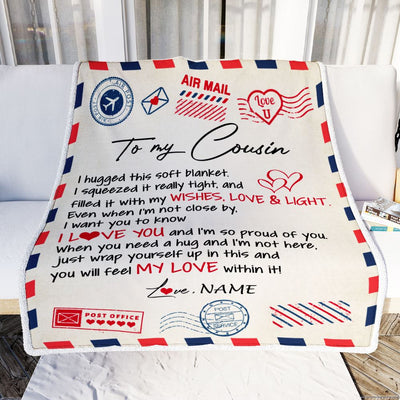 AIR POST
AIR MAIL
Love
U
To my Cousin
I hugged this soft blanket.
I squeezed it really tight, and
filled it with my WISHES, LOVE & LIGHT.
Even when I'm not close by.
I want you to know
I LOVE YOU and I'm so proud of you.
When you need a hug and I'm not here,
just wrap yourself up in this and
you will feel MY LOVE within it!
Love, NAME
POST OFFICE
POST
SERVICE